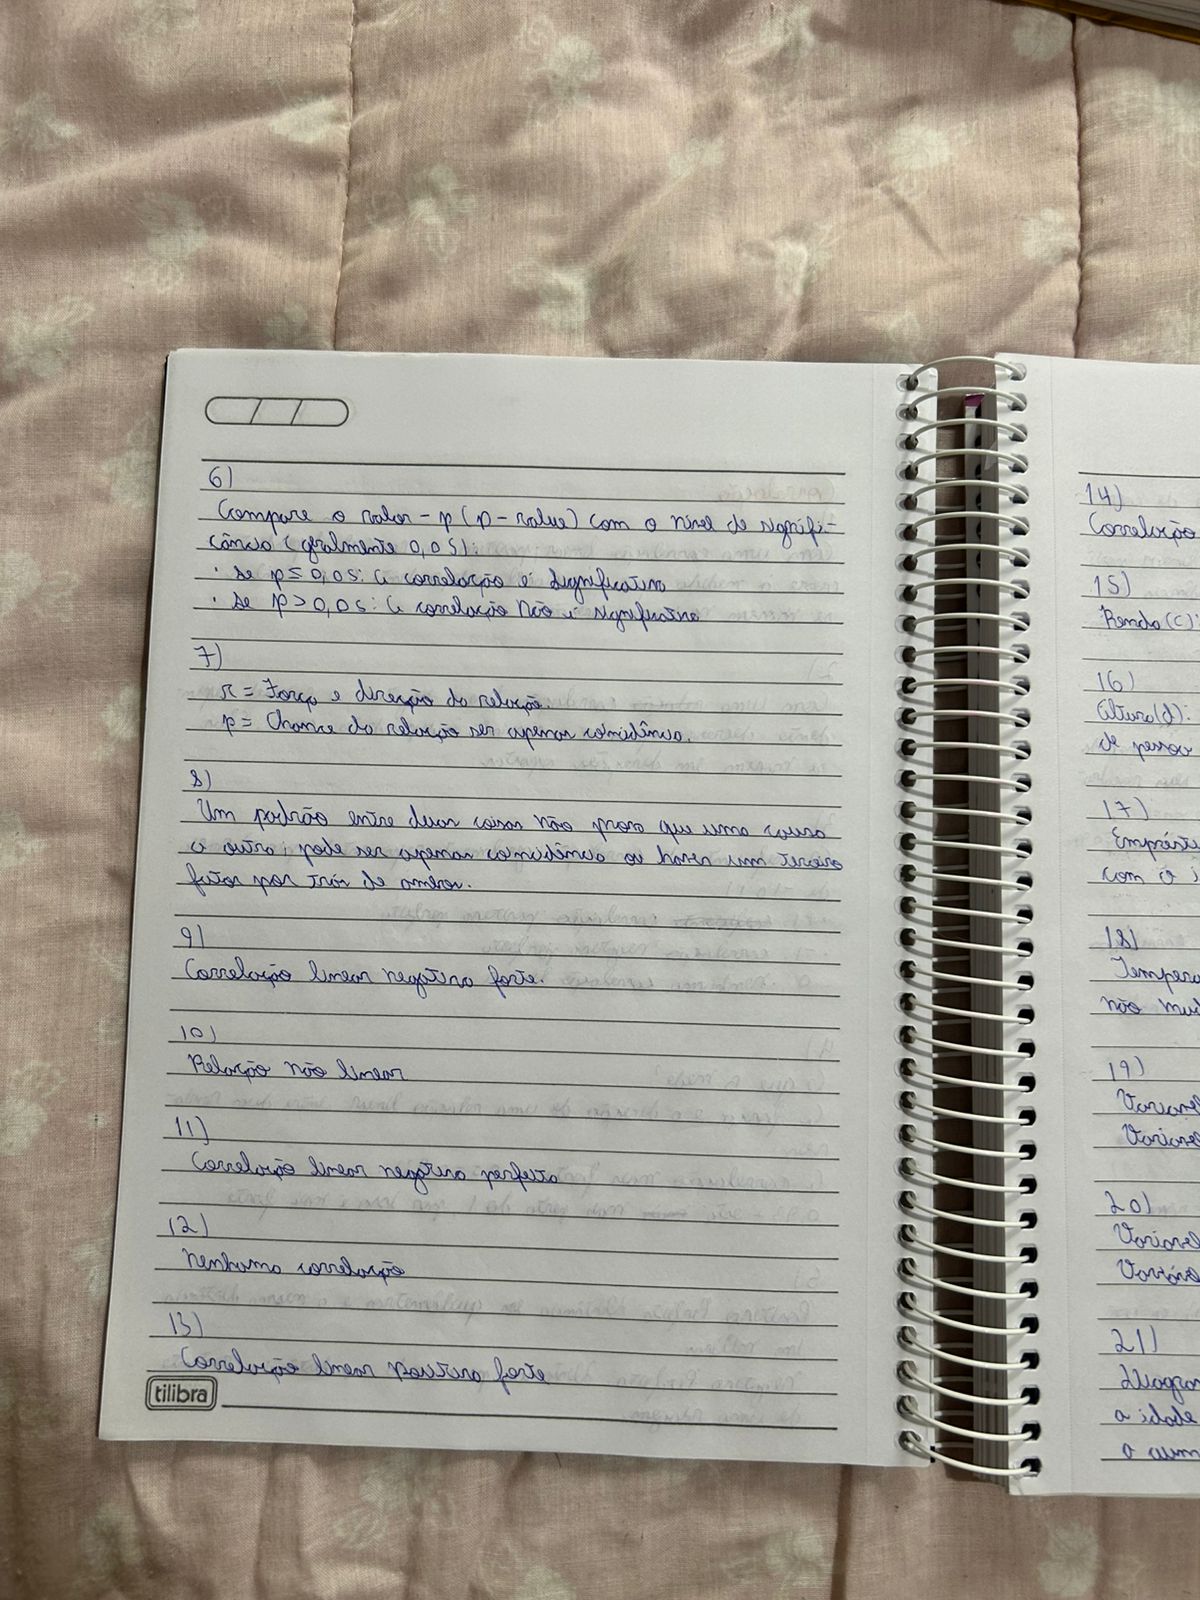 6)
Compare o valor-p (p-value) com o nível de signifi-
cância (geralmente 0,05):
· se p ≤ 0,05: a correlação é significativa
· se p > 0,05: a correlação não é significativa
7)
r = Força e direção da relação.
p = Chance da relação ser apenas coincidência.
8)
Um padrão entre duas coisas não prova que uma causa
a outra; pode ser apenas coincidência ou haver um terceiro
fator por trás de ambos.
9)
Correlação linear negativa forte.
10)
Relação não linear
11)
Correlação linear negativa perfeita
12)
Nenhuma correlação
13)
Correlação linear positiva forte
tilibra
14)
Correlação
15)
Renda(c):
16)
Altura(d):
de pessoa
17)
com o i
18)
Tempera
não mud
19)
20)
21)
Diagra
a idade
o aum